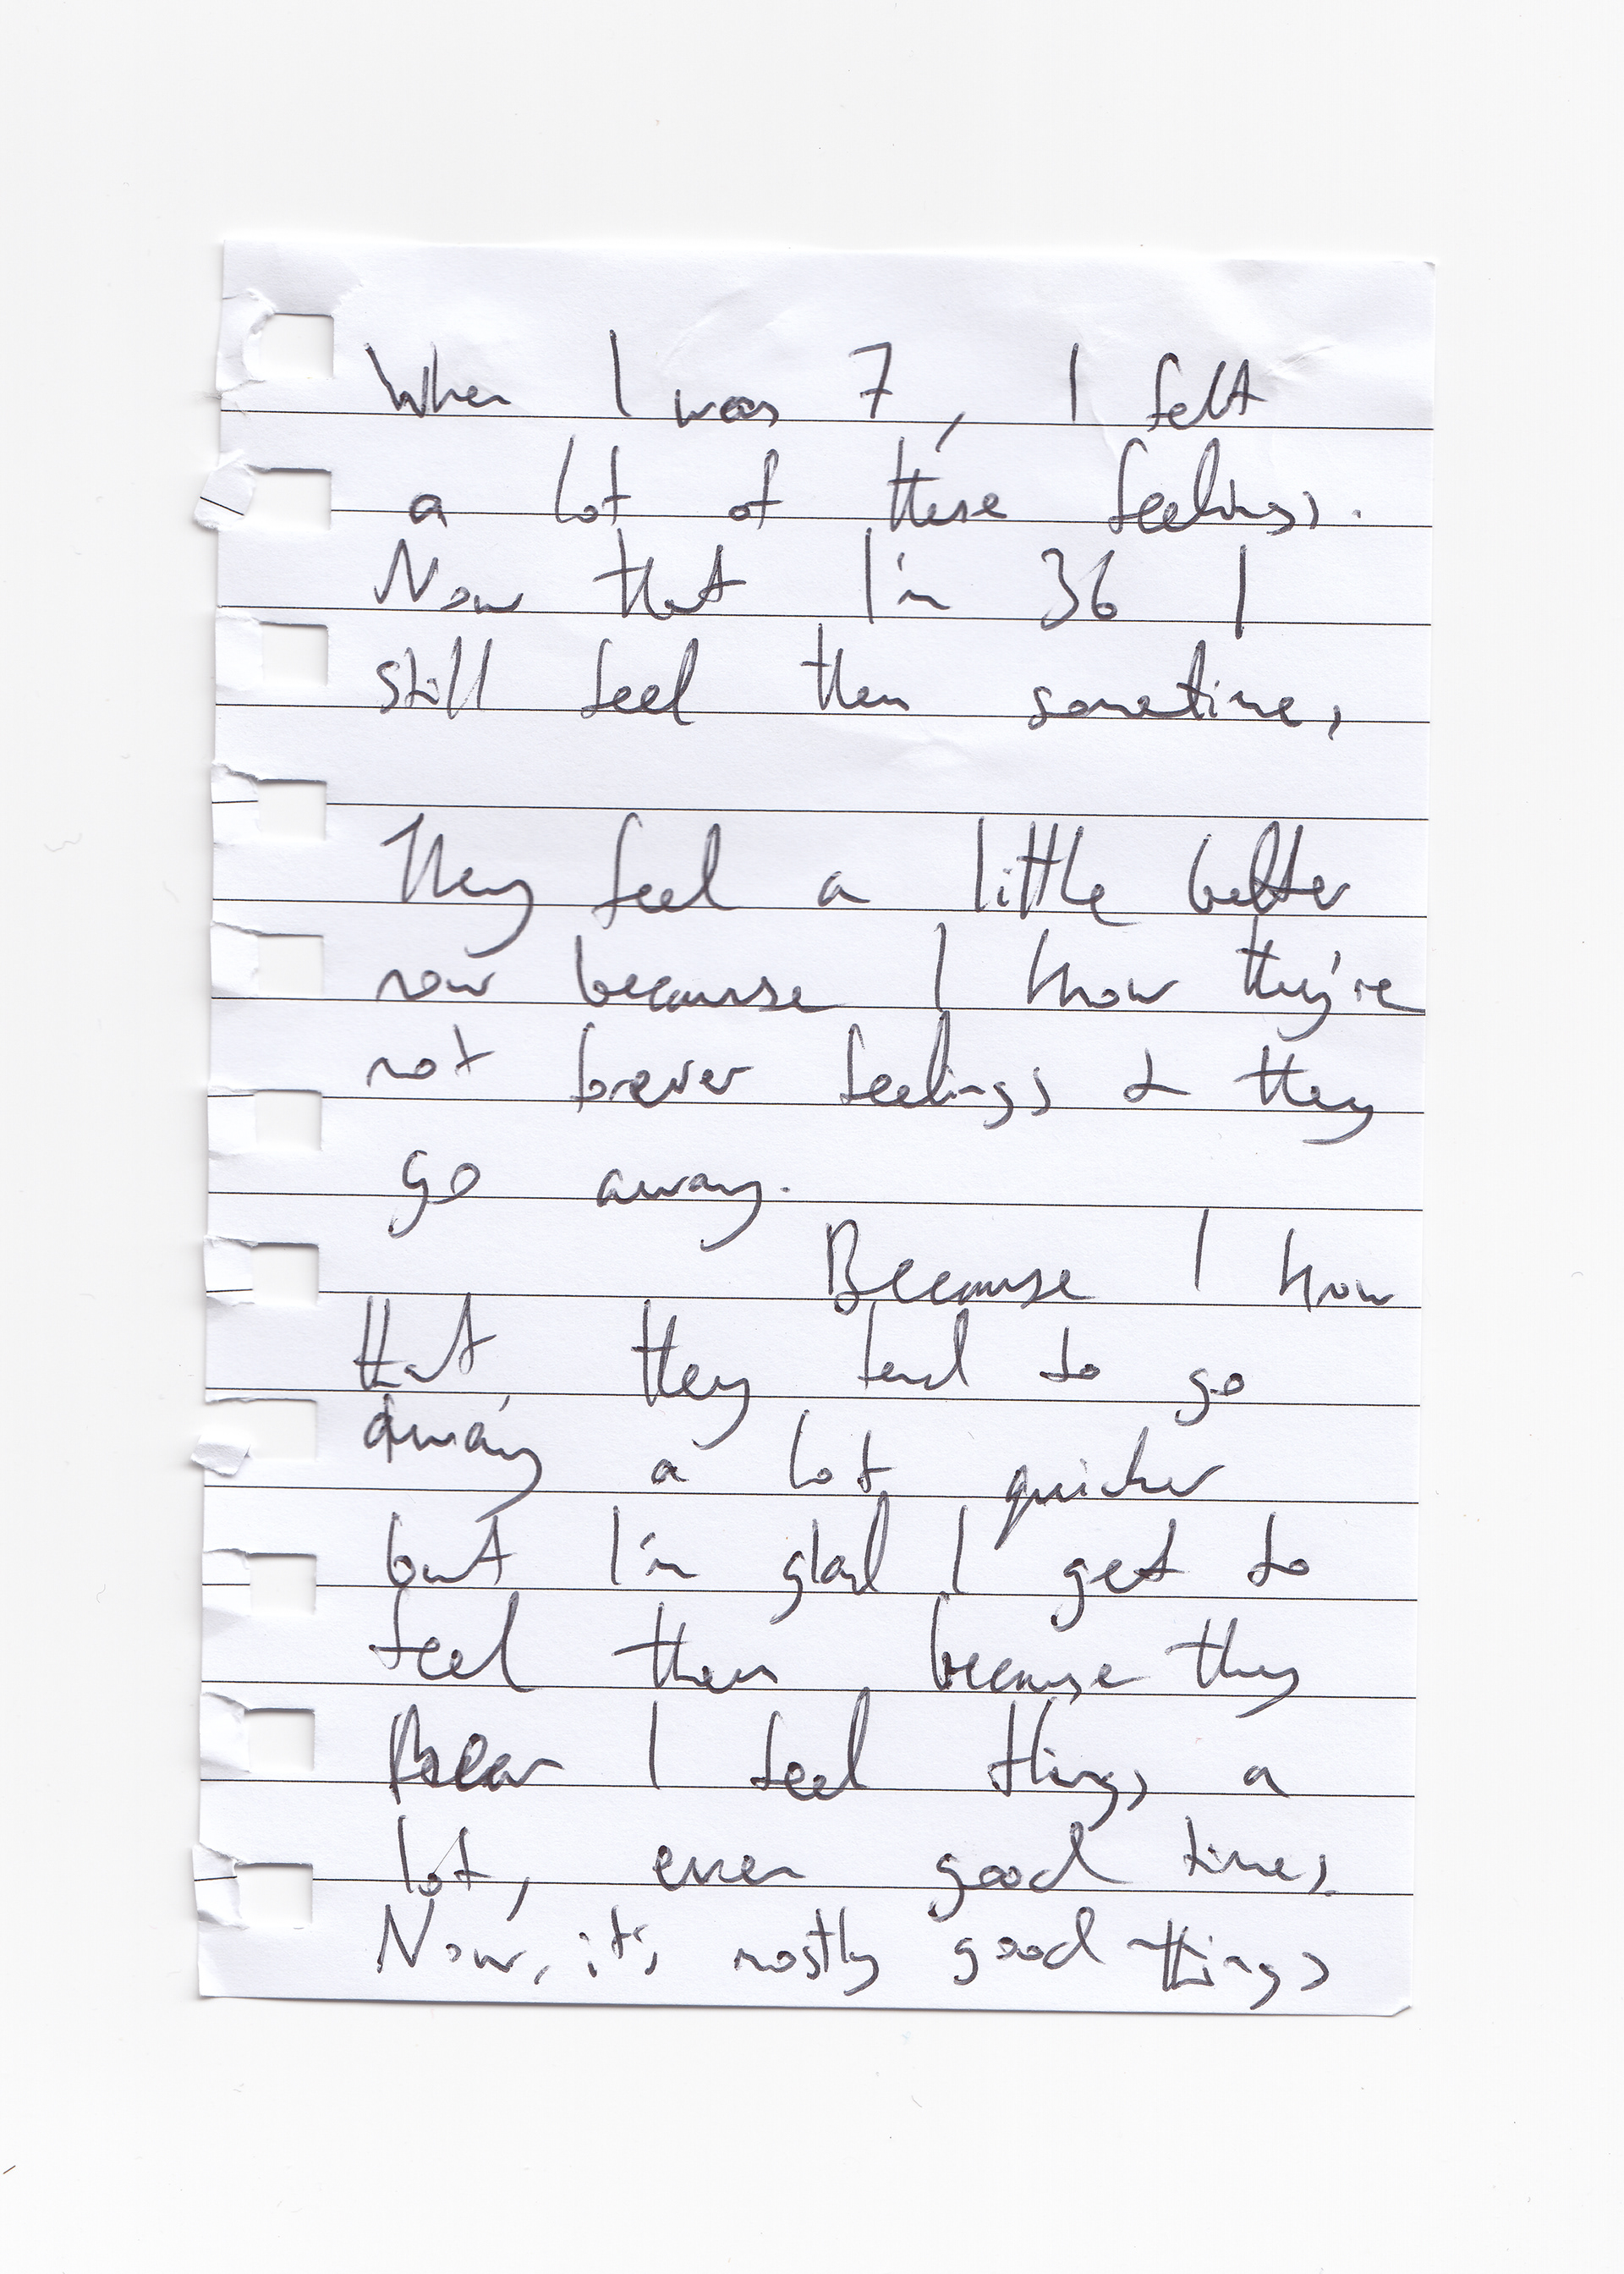 When I was 7, I felt
a lot of these feelings.
Now that I'm 36 I
still feel them sometimes
They feel a little better
now because I know they're
not forever feelings & they
go away.
Because I know
that, they tend to go
away a lot quicker
but I'm glad I get to
feel them because they
mean I feel things a
lot, even good times.
Now, it's mostly good things